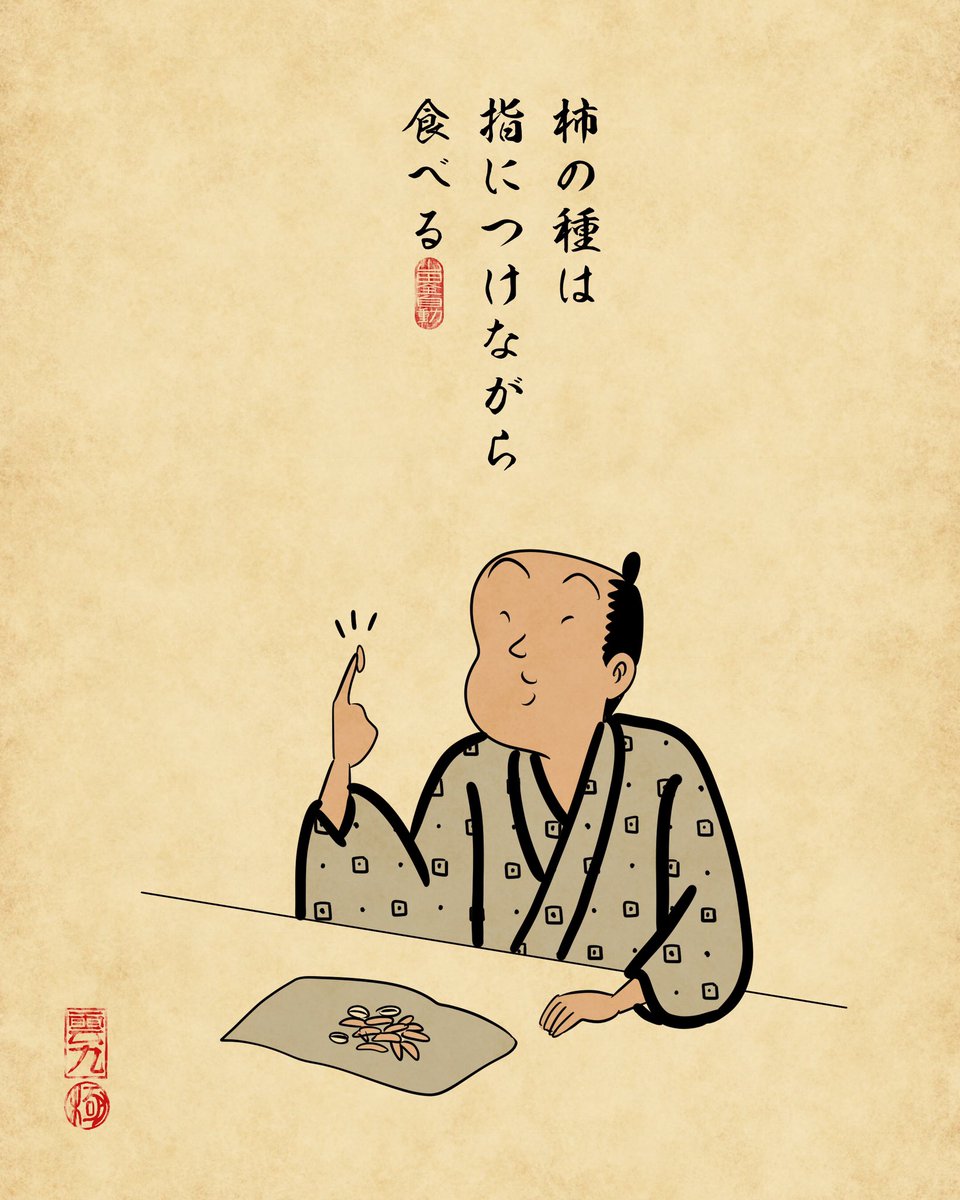 柿の種は
指につけながら
食べる
雲九
極